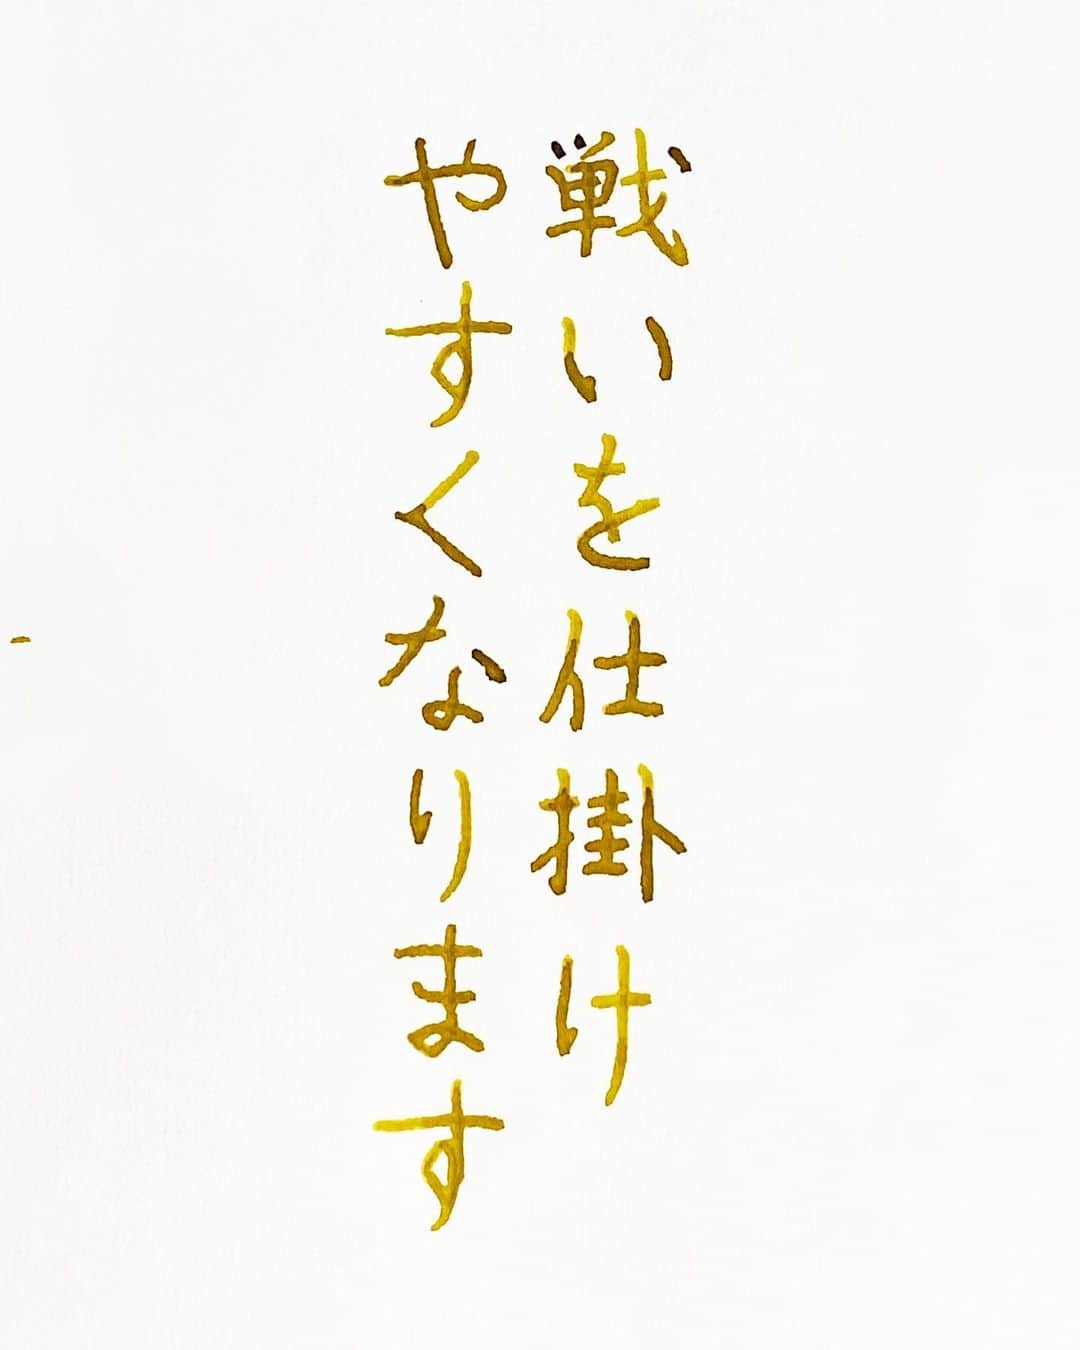 戦いを仕掛け
やすくなります